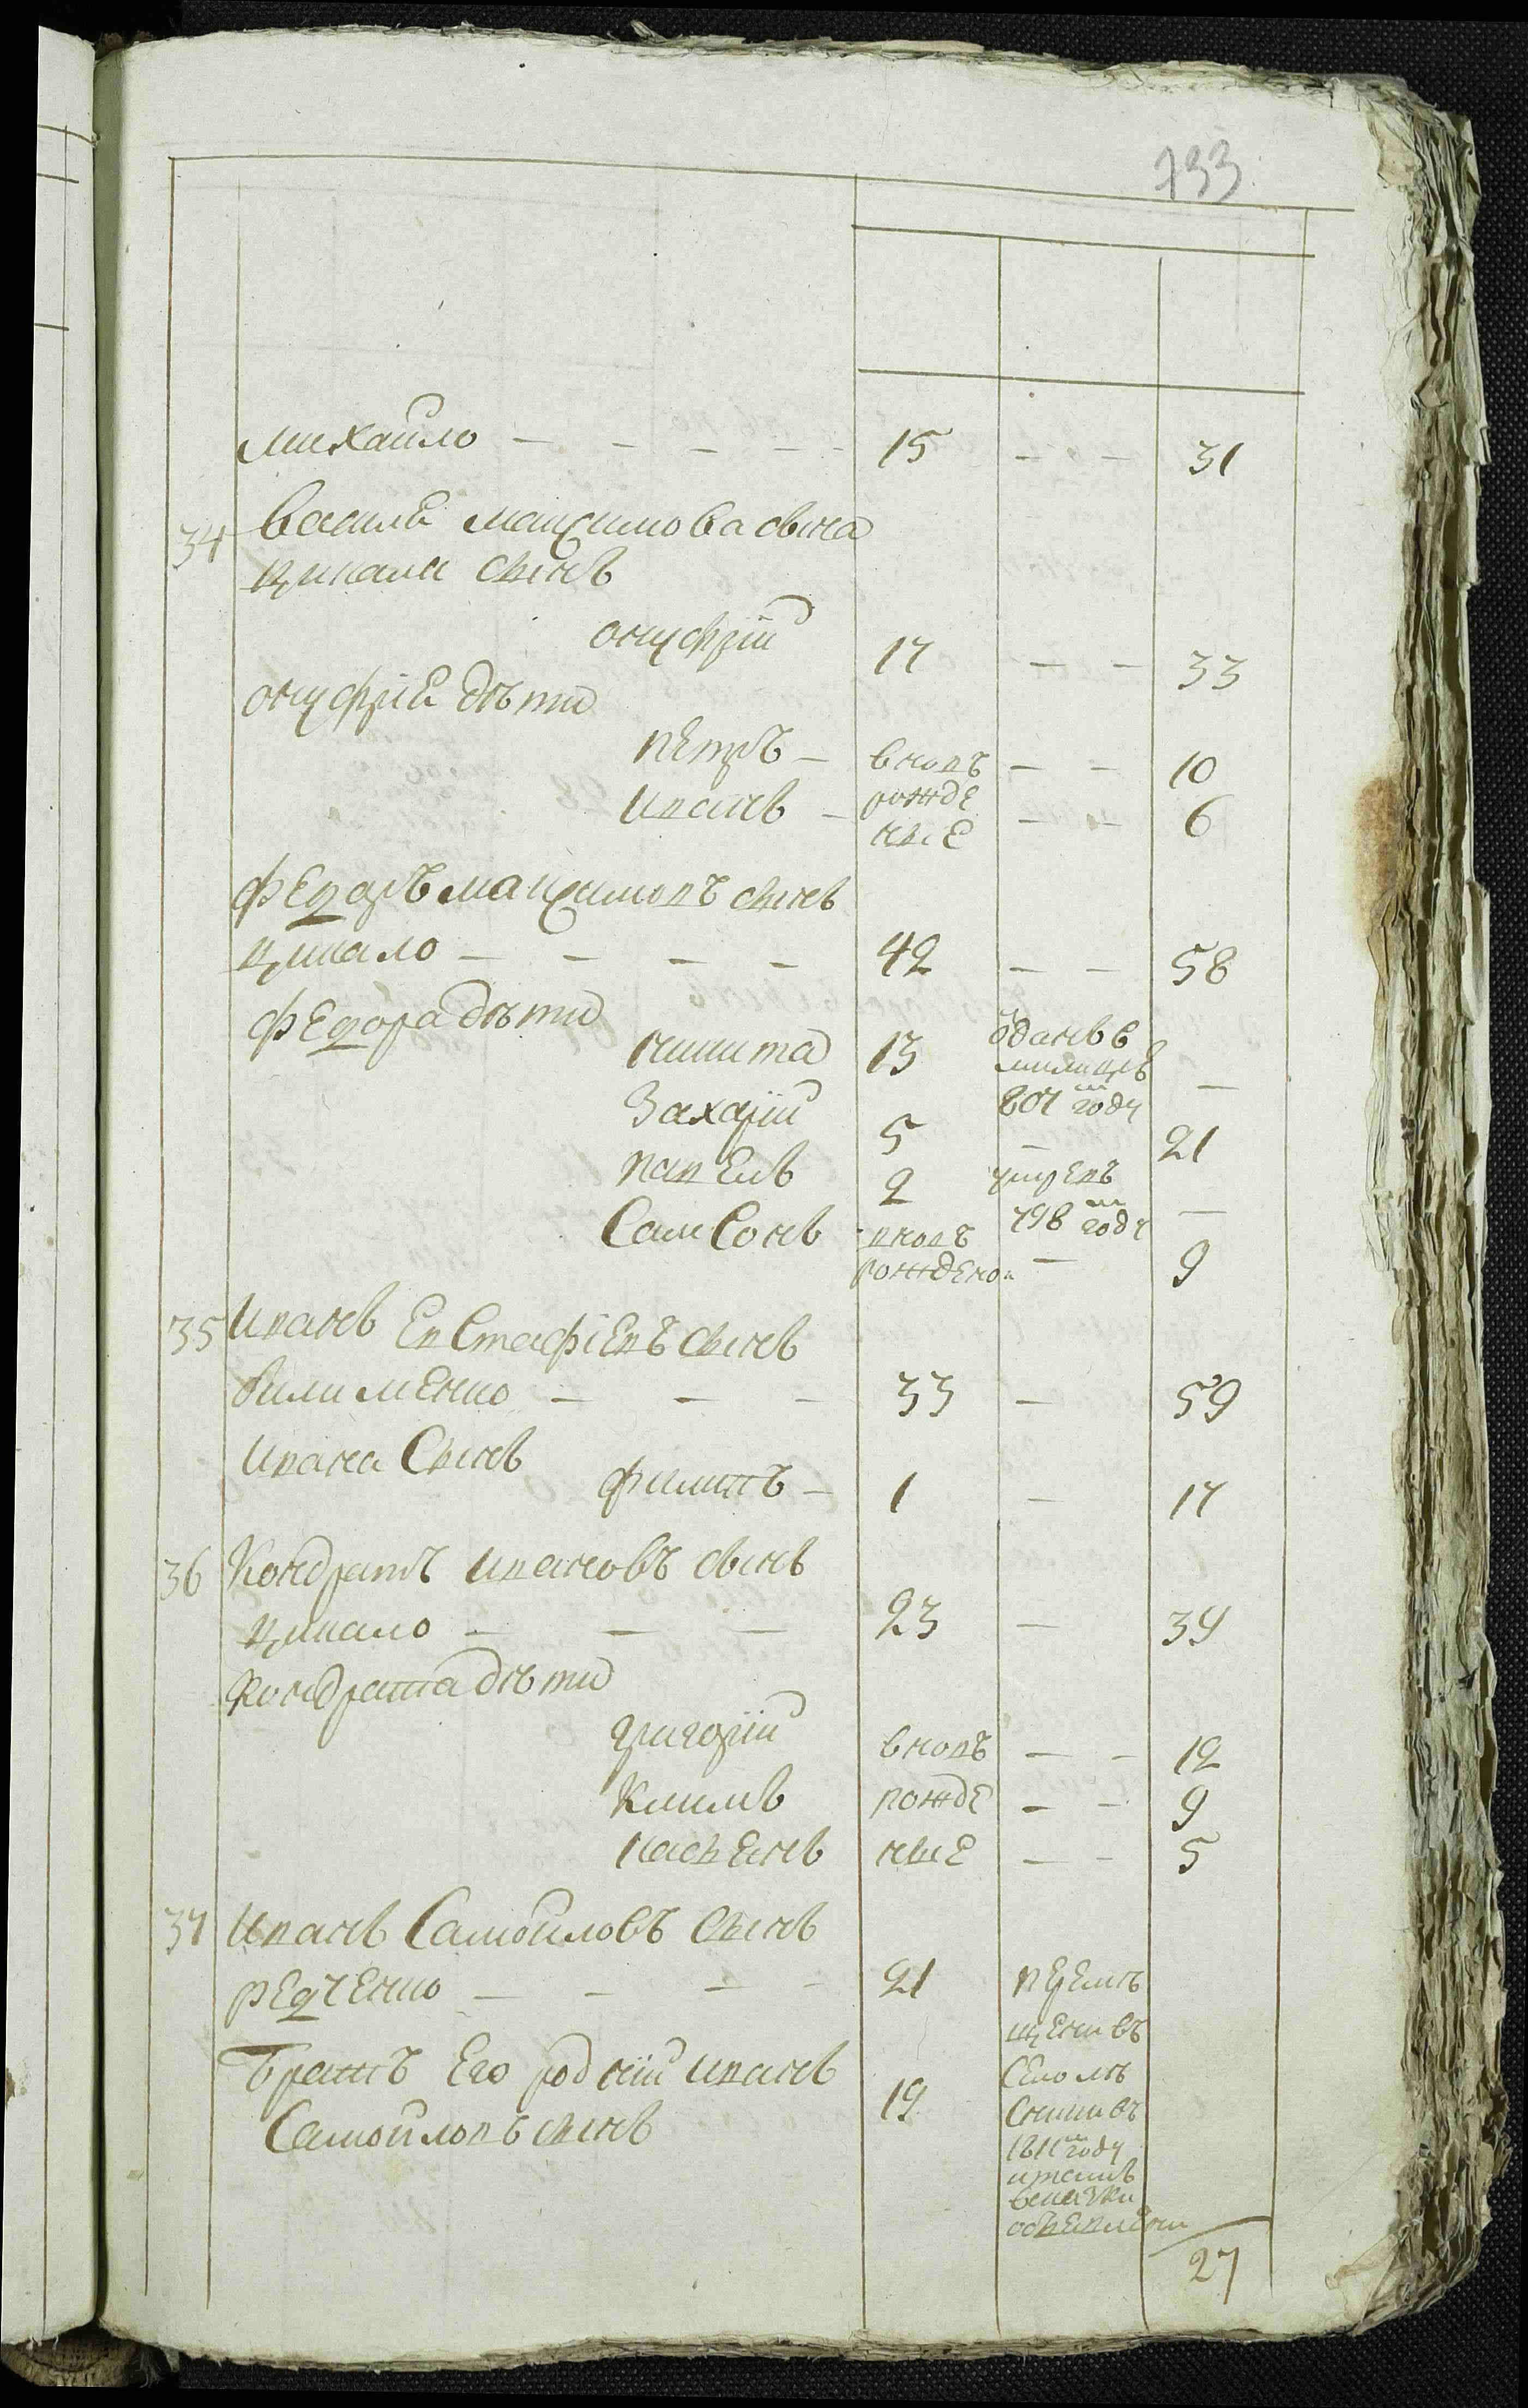 733.
Михайло — — — — 15 — — 31
34 Василя Максимова сына
Цикали сынъ
Онуфрій 17 — — 33
Онуфрія дѣти
Петръ — вновь — — 10
Иванъ — рожде — — 6
ные
Федоръ Максимовъ сынъ
Цикало — — — — 42 — — 58
Федора дѣти
Никита 13 отданъ в
милицію —
807м году
Захарій 5 — 21
Павелъ 2 умре въ —
798м году
Самсонъ вновь — 9
рожденой
35 Иванъ Евстафіевъ сынъ
Филименко — — — 33 — 59
Ивана сынъ
Филипъ — 1 — 17
36 Кондратъ Ивановъ сынъ
Цикало — — — 23 — 39
Кондрата дѣти
Григорій вновь — — 12
Климъ рожде — — 9
Касьянъ ные — — 5
37 Иванъ Самойловъ сынъ
Редченко — — — — 21 перемѣ
щени въ
Братъ его родній Иванъ 19
Самойловъ сынъ
1811м году
и тамъ
27